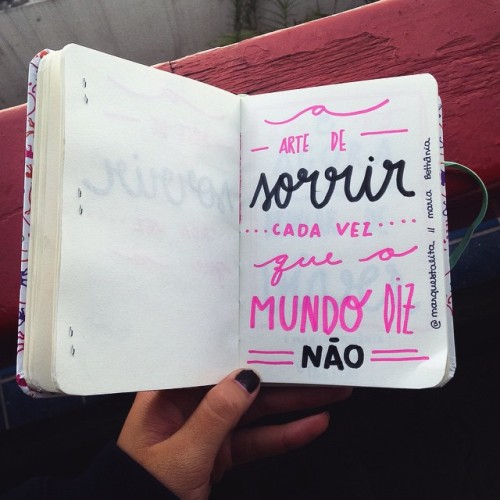 a
ARTE DE
sorrir
CADA VEZ
que o
MUNDO DIZ
NÃO
@marquestalita // maria Bethânia